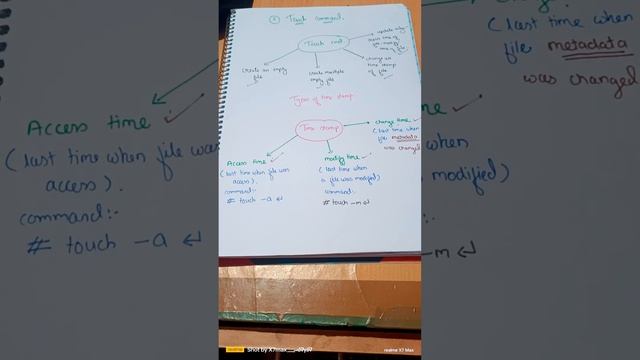 Touch command.
Touch cmd.
Create an empty
file
Create multiple
empty file
change all
time stamp
of file
update only
access time of
file, modify
time of file
Types of time stamp
Time stamp
Access time
(last time when file was
access).
command:-
# touch -a ↵
modify time
(last time when
a file was modified)
command:-
# touch -m ↵
change time
(last time when
file metadata
was changed
Access time
(last time when file was
access).
command:-
# touch -a ↵
(last time when
file metadata
was changed
when
modified)
-m ↵
realme
Shot by X7max
realme X7 Max